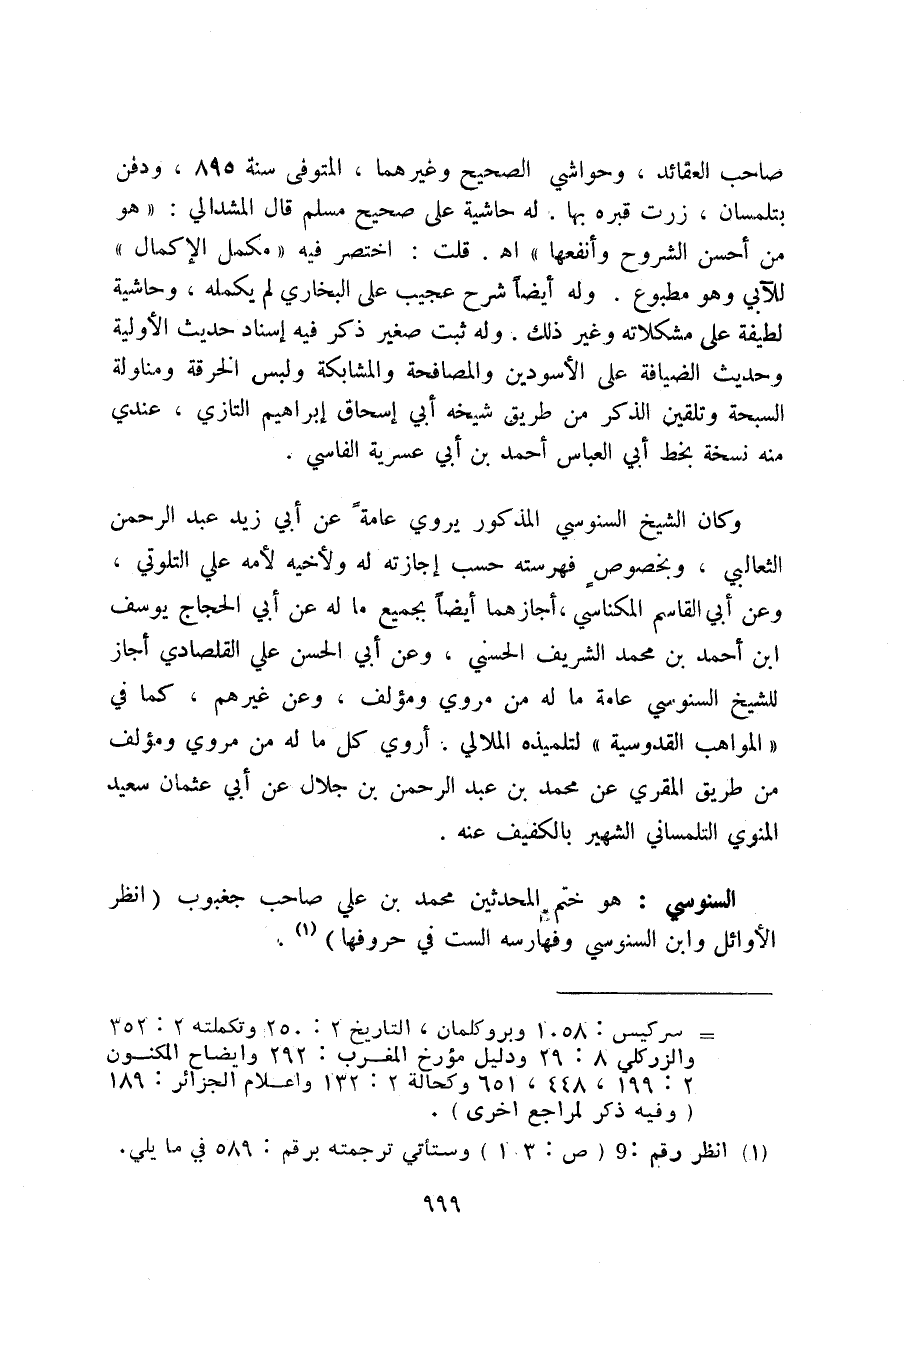 صاحب العقائد ، وحواشي الصحيح وغيرهما ، المتوفى سنة ٨٩٥ ، ودفن
بتلمسان ، زرت قبره بها . له حاشية على صحيح مسلم قال المشدالي : « هو
من أحسن الشروح وأنفعها » اه . قلت : اختصر فيه « مكمل الإكمال »
للآبي وهو مطبوع . وله أيضاً شرح عجيب على البخاري لم يكمله ، وحاشية
لطيفة على مشكلاته وغير ذلك . وله ثبت صغير ذكر فيه إسناد حديث الأولية
وحديث الضيافة على الأسودين والمصافحة والمشابكة ولبس الخرقة ومناولة
السبحة وتلقين الذكر من طريق شيخه أبي إسحاق إبراهيم التازي ، عندي
منه نسخة بخط أبي العباس أحمد بن أبي عسرية الفاسي .
وكان الشيخ السنوسي المذكور يروي عامةً عن أبي زيد عبد الرحمن
الثعالبي ، وبخصوصٍ فهرسته حسب إجازته له ولأخيه لأمه علي التلوتي ،
وعن أبي القاسم المكناسي ، أجازهما أيضاً بجميع ما له عن أبي الحجاج يوسف
ابن أحمد بن محمد الشريف الحسني ، وعن أبي الحسن علي القلصادي أجاز
للشيخ السنوسي عامة ما له من مروي ومؤلف ، وعن غيرهم ، كما في
« المواهب القدوسية » لتلميذه الملالي . أروي كل ما له من مروي ومؤلف
من طريق المقري عن محمد بن عبد الرحمن بن جلال عن أبي عثمان سعيد
المنوي التلمساني الشهير بالكفيف عنه .
السنوسي : هو ختم المحدثين محمد بن علي صاحب جغبوب ( انظر
الأوائل وابن السنوسي وفهارسه الست في حروفها ) (١) .
= سركيس : ١٠٥٨ وبروكلمان ، التاريخ ٢ : ٢٥٠ وتكملته ٢ : ٣٥٢
والزركلي ٨ : ٢٩ ودليل مؤرخ المغرب : ٢٩٢ وايضاح المكنون
٢ : ١٩٩ ، ٤٤٨ ، ٦٥١ وكحالة ٢ : ١٣٢ واعلام الجزائر : ١٨٩
( وفيه ذكر لمراجع اخرى ) .
(١) انظر رقم : 9 ( ص : ١٠٣ ) وستأتي ترجمته برقم : ٥٨٩ في ما يلي .
٩٩٩